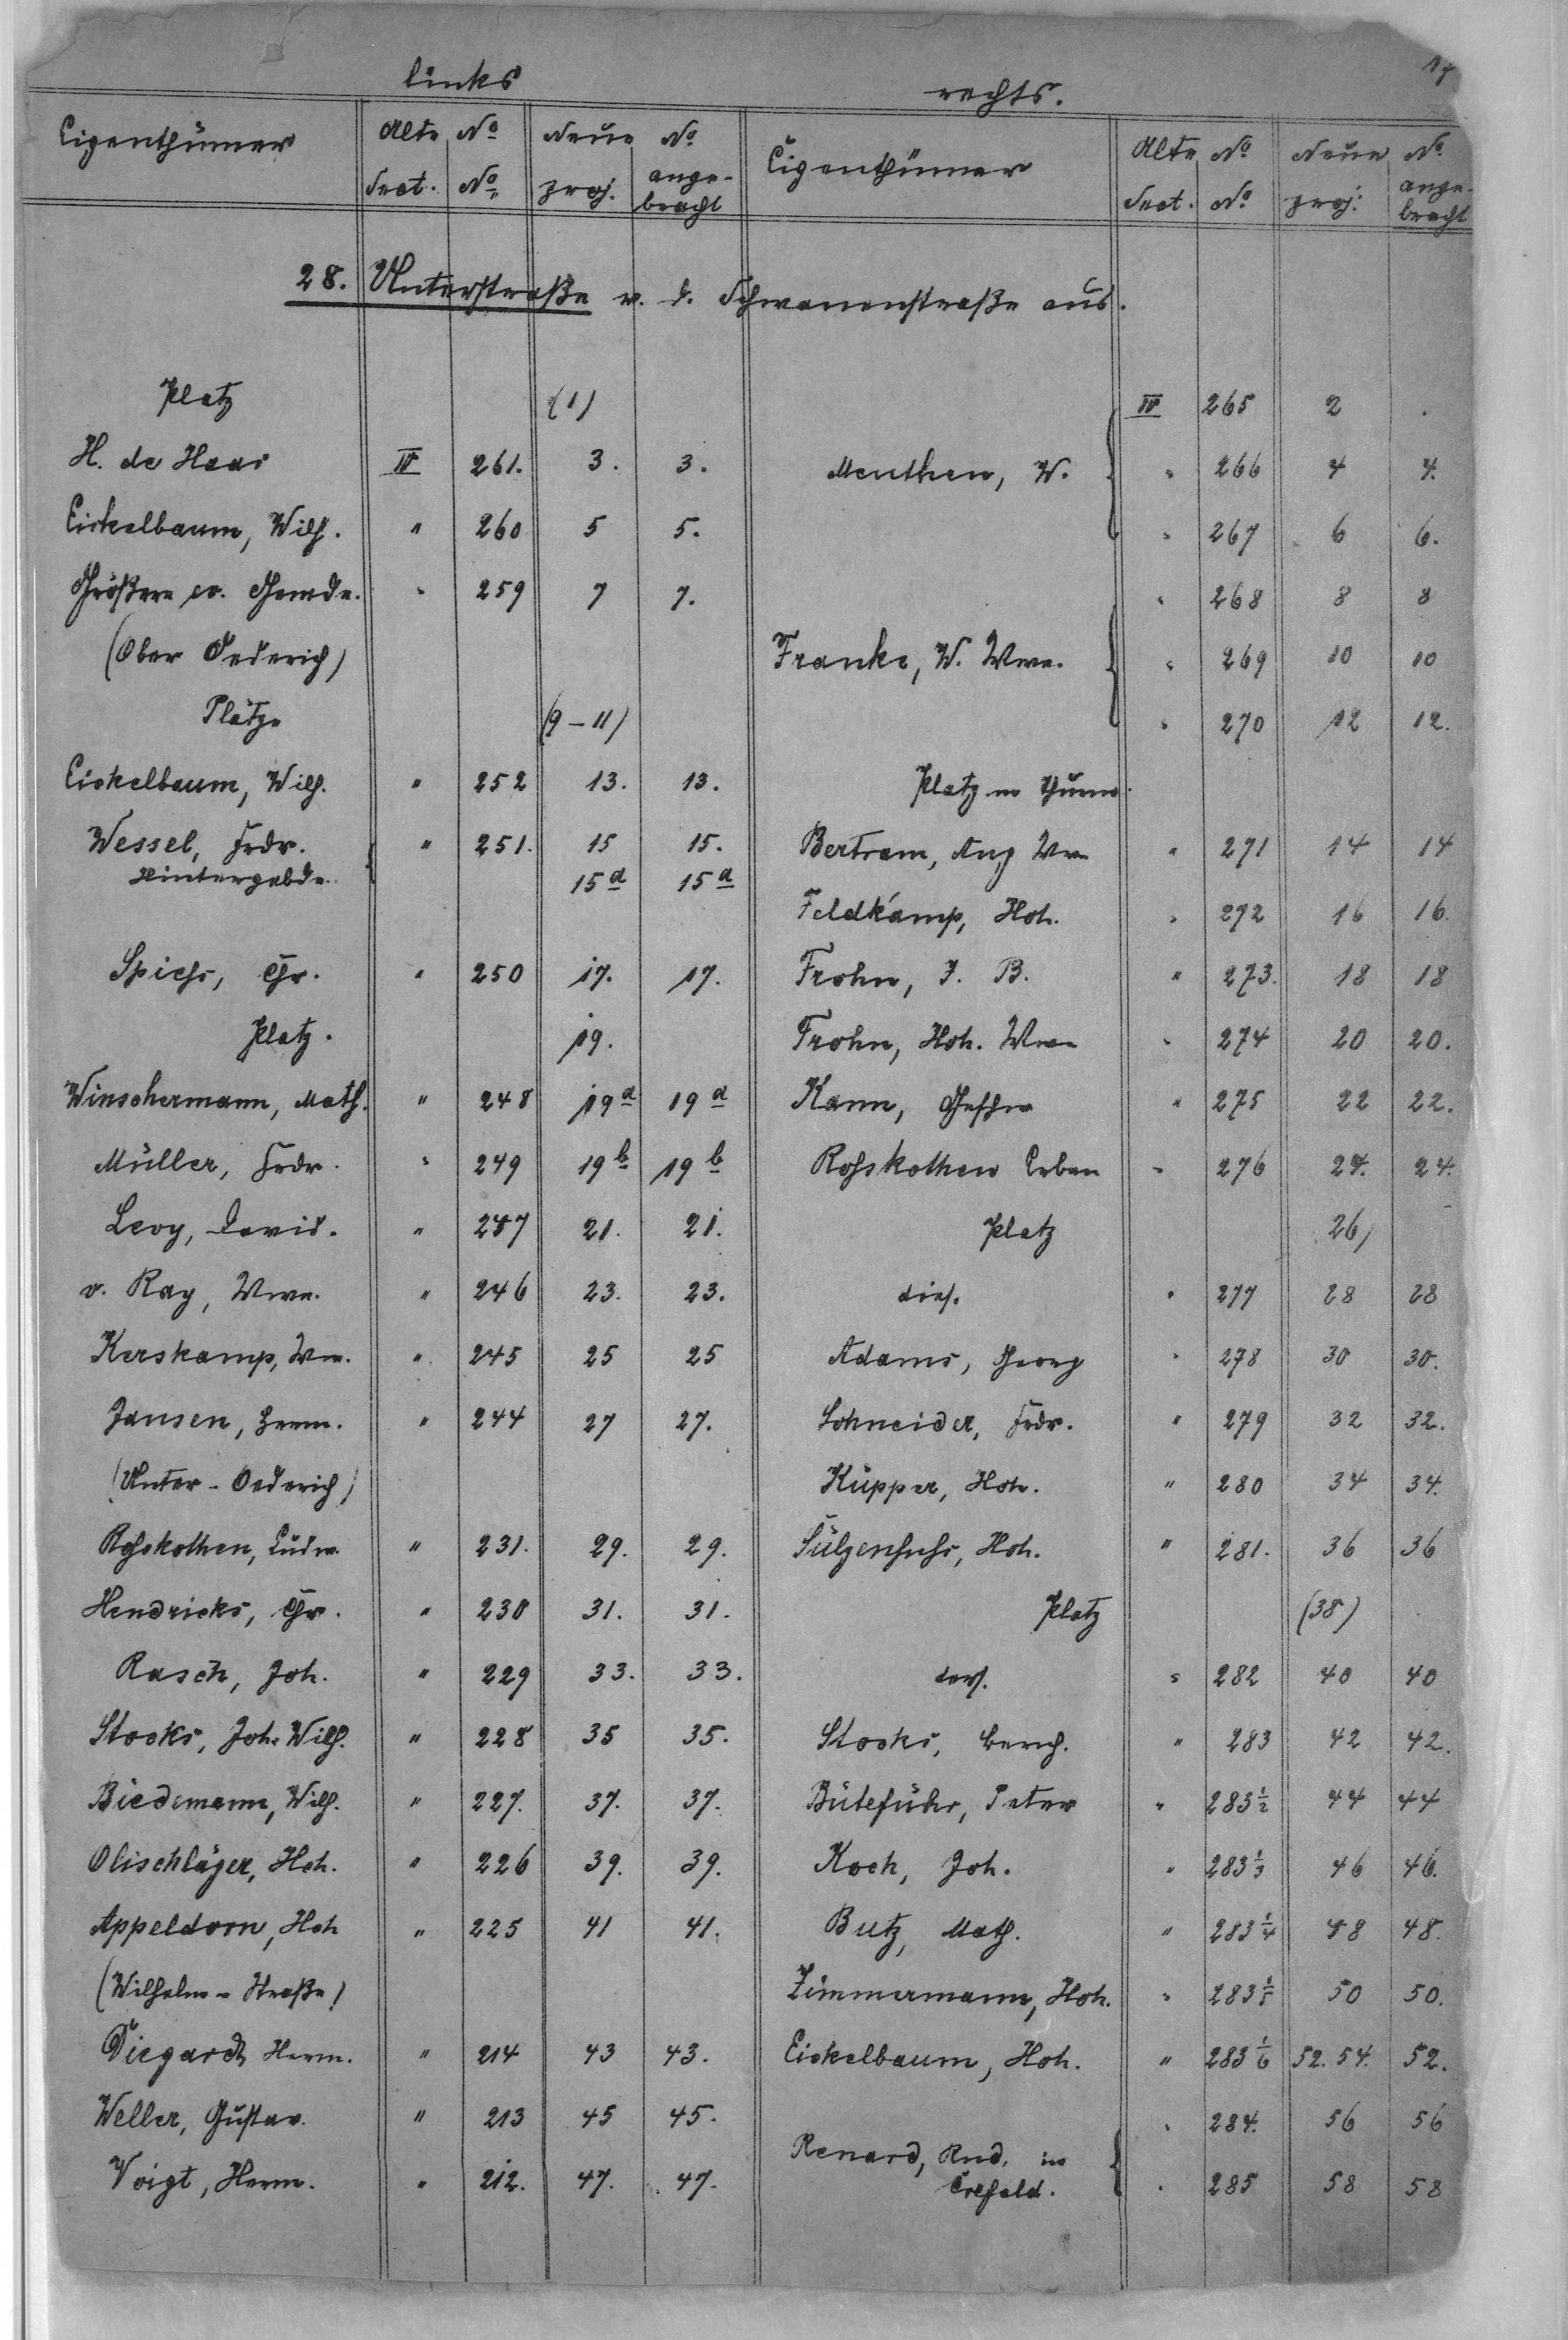 17
links rechts.
Eigenthümer Alte No Neue No Eigenthümer Alte No Neue No
Sect. No proj. ange- Sect. No proj. ange-
bracht bracht
28. Unterstraße v. d. Schwanenstraße aus.
Platz (1) IV 265 2 .
H. de Haas IV 261. 3. 3. Menthen, W. " 266 4 4.
Eickelbaum, Wilh. " 260 5 5. " 267 6 6.
Größere ev. Gemde. " 259 7 7. " 268 8 8
(Ober Oederich) Franke, W. Wwe. " 269 10 10
Plätze (9-11) " 270 12 12.
Eickelbaum, Wilh. " 252 13. 13. Platz m Thurm.
Wessel, Frdr. " 251. 15 15. Bertram, Aug Wwe " 271 14 14
Hintergebde. 15a 15a
Feldkamp, Hch. " 272 16 16.
Spichs, Chr. " 250 17. 17. Frohn, J. B. " 273. 18 18
Platz. 19. Frohn, Hch. Wwe " 274 20 20.
Winschermann, Math. " 248 19a 19a Kann, Geschw " 275 22 22.
Müller, Frdr. " 249 19b 19b Roßkothen Erben " 276 24. 24.
Levy, David. " 247 21. 21. Platz 26)
v. Ray, Wwe. " 246 23. 23. dies. " 277 28 28
Kerskamp, Wm. " 245 25 25 Adams, Georg " 278 30 30.
Jansen, Herm. " 244 27 27. Schneider, Frdr. " 279 32 32.
(Unter-Oederich) Küpper, Hch. " 280 34 34.
Roßkothen, Ludw. " 231. 29. 29. Sülzenfuhs, Hch. " 281. 36 36
Hendricks, Chr. " 230 31. 31. Platz (38)
Rasch, Joh. " 229 33. 33. ders. " 282 40 40
Stocks, Joh. Wilh. " 228 35 35. Stocks, Bernh. " 283 42 42.
Biedemann, Wilh. " 227. 37. 37. Büteführ, Peter " 283 1/2 44 44
Olischläger, Hch. " 226 39. 39. Koch, Joh. " 283 1/3 46 46.
Appeldorn, Hch " 225 41 41. Butz, Math. " 283 1/4 48 48.
(Wilhelm-Straße) Zimmermann, Hch. " 283 1/5 50 50.
Diegardt, Herm. " 214 43 43. Eickelbaum, Hch. " 283 1/6 52. 54. 52.
Weller, Gustav. " 213 45 45. " 284. 56 56
Renard, Rud. in
Voigt, Herm. " 212. 47. 47. Crefeld. " 285 58 58